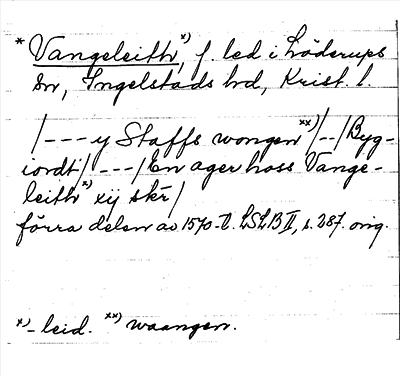 * Vangeleith x), f. led i Löderups
sn, Ingelstads hd, Krist. l.
/---y Staffs wongen xx)/--/Byg-
iordt/---/En ager hoss Vange-
leith x) xij skr̄/
förra delen av 1570-t. LSLB II, s. 287. orig.
x) -leid. xx) waangen.